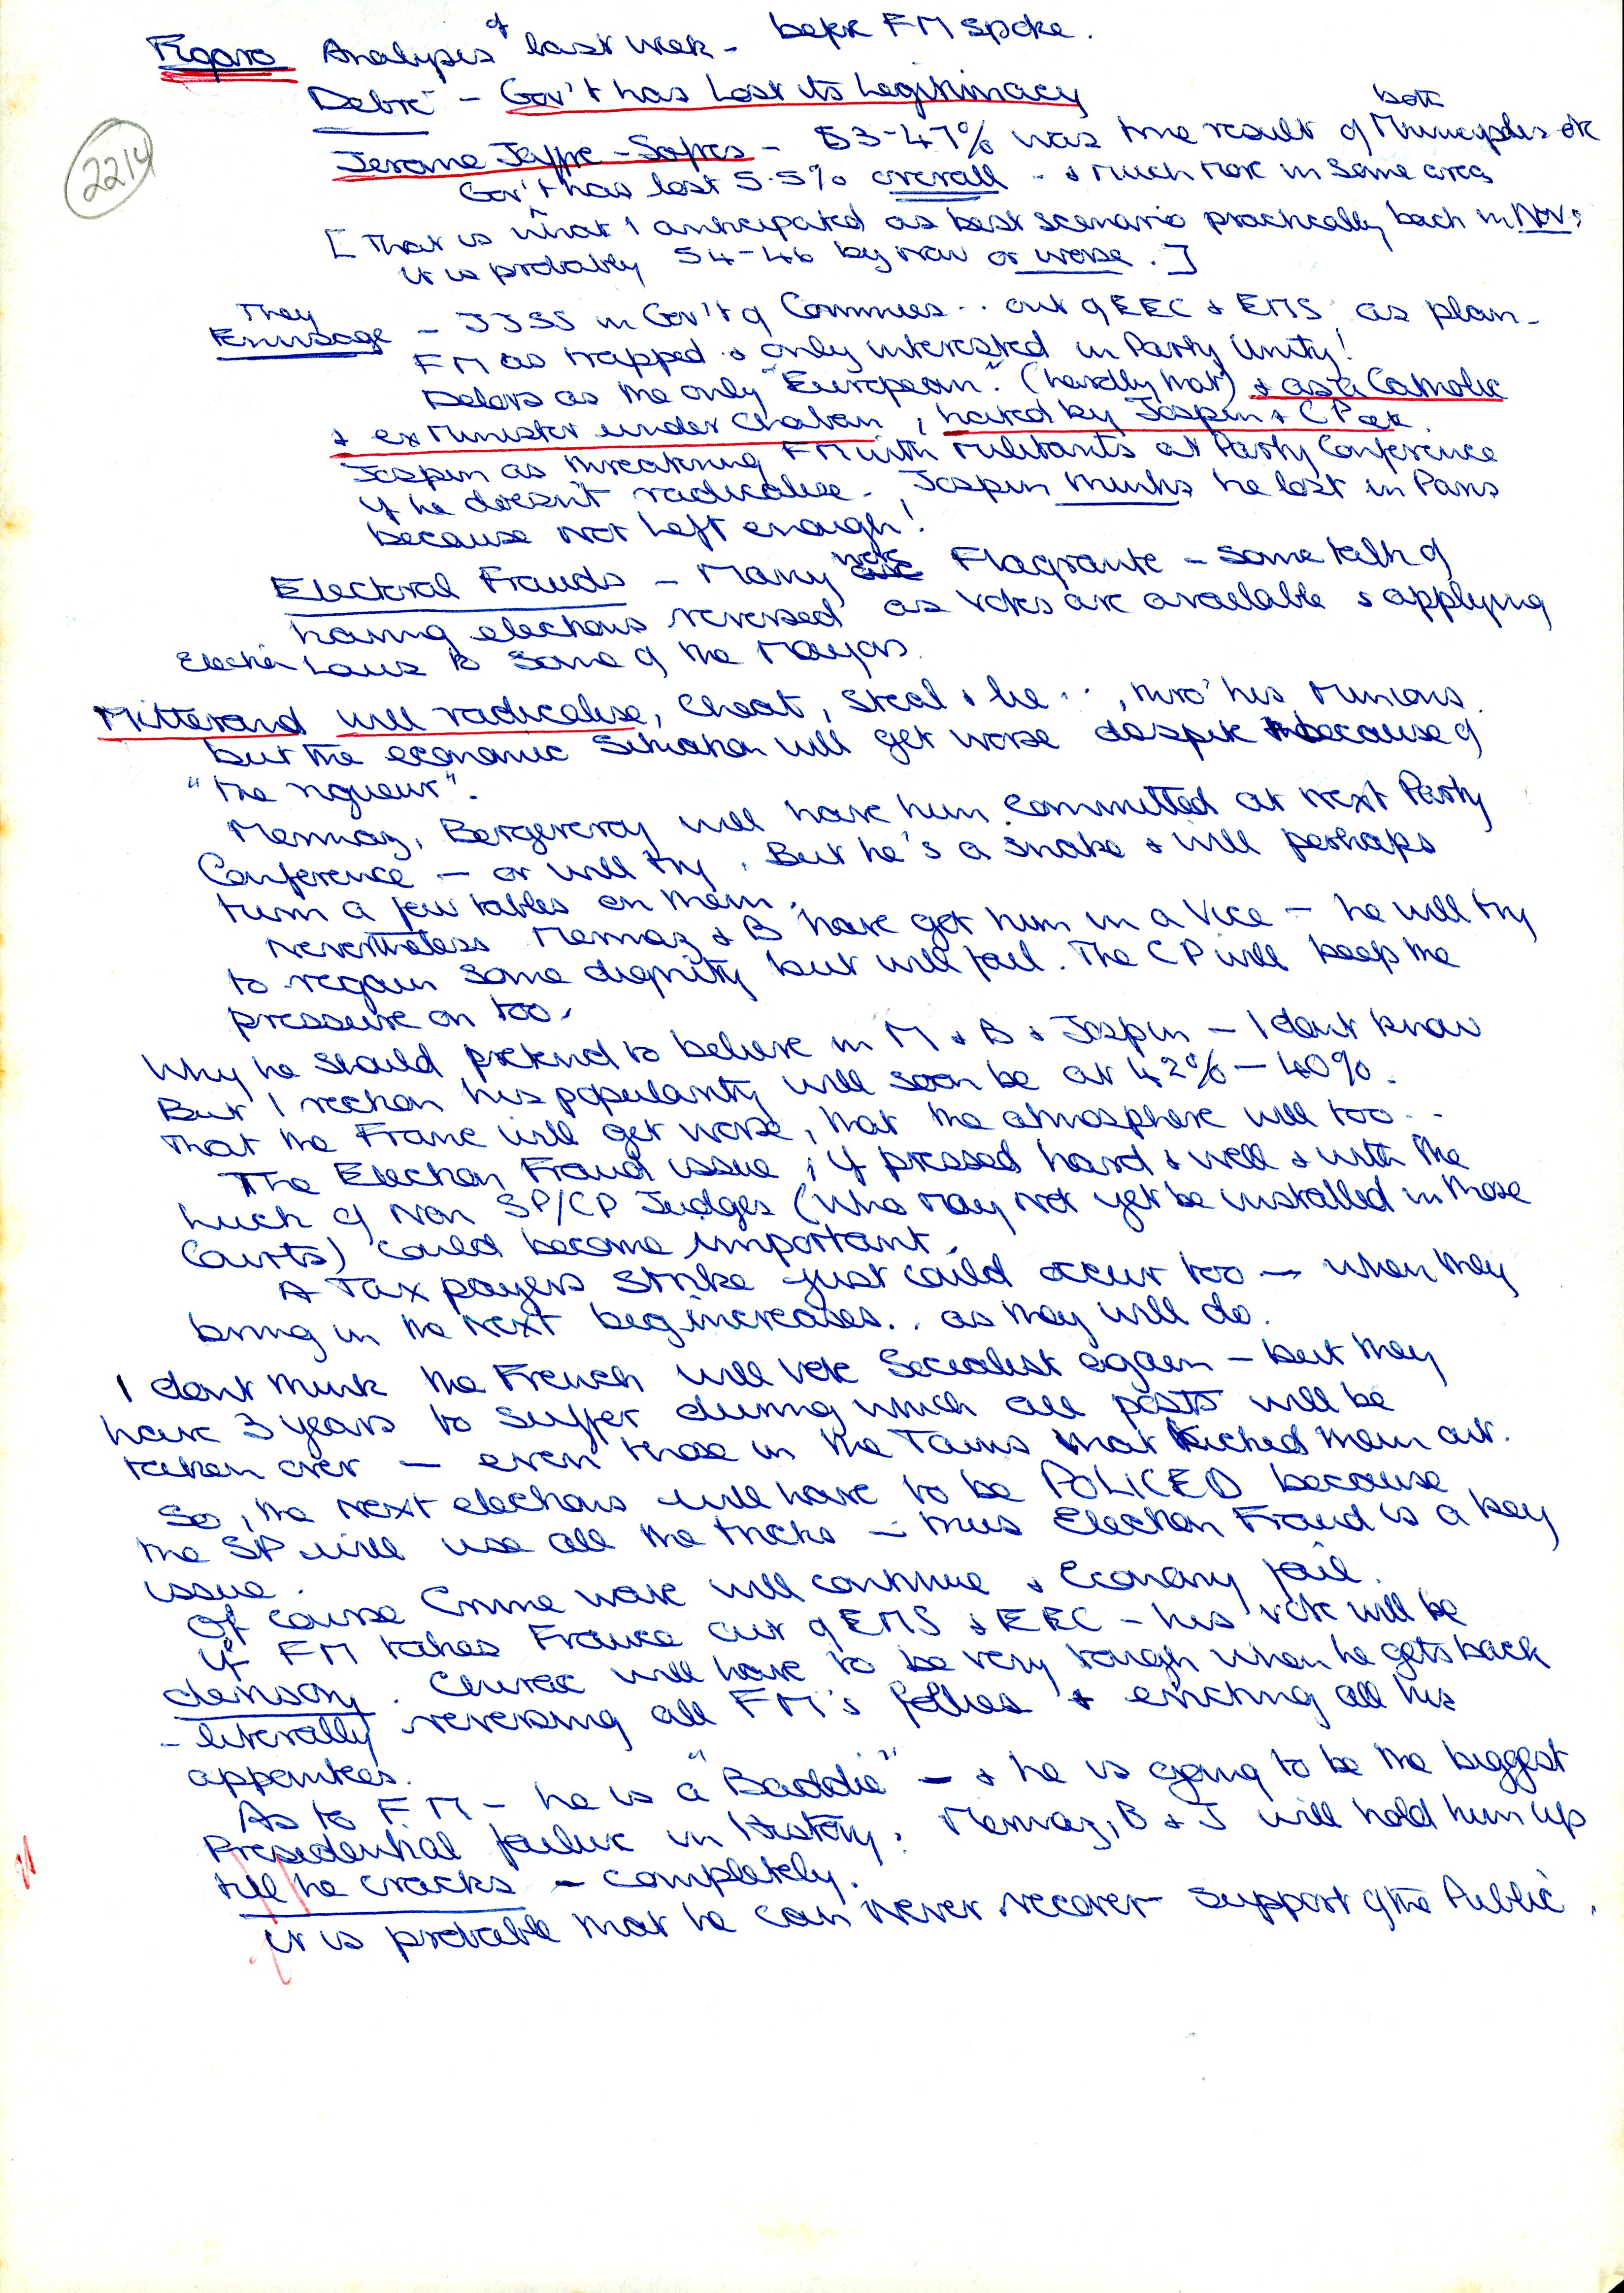 2214
Figaro Analyses of last week - before FM spoke.
Debré - Gov't has Lost its Legitimacy
Jerome Jaffre - Sofres - 53-47% was true result of both Municipales etc
Gov't has lost 5.5% overall - & much more in some areas
[That is what I anticipated as best scenario practically back in Nov;
it is probably 54-46 by now or worse.]
They
Envisage - JJSS in Gov't of Commies .. out of EEC & EMS, as plan -
FM as trapped & only interested in Party Unity!
Delors as the only "European". (hardly that) & as a Catholic
& ex Minister under Chaban, hated by Jospin & CP etc.
Jospin as threatening FM with militants at Party Conference
if he doesn't radicalise - Jospin thinks he lost in Paris
because not Left enough!
Electoral Frauds - Many more Flagrante - some talk of
having elections reversed as votes are available & applying
Election Laws to some of the Mayors.
Mitterand will radicalise, Cheat, Steal & lie .., thro' his Minions.
but the economic situation will get worse despite because of
"the rigueur".
Mermaz, Bergeroy will have him committed at next Party
Conference - or will try. But he's a snake & will perhaps
turn a few tables on them.
Nevertheless Mermaz & B have got him in a Vice - he will try
to regain some dignity but will fail. The CP will keep the
pressure on too.
Why he should pretend to believe in M & B & Jospin - I dont know
But I reckon his popularity will soon be at 42% - 40%.
That the Franc will get worse, that the atmosphere will too ..
The Election Fraud issue, if pressed hard & well & with the
luck of Non SP/CP Judges (who may not yet be installed in those
Courts) could become important.
A Tax payers Strike just could occur too - when they
bring in the next big increases .. as they will do.
I dont think the French will vote Socialist again - but they
have 3 years to suffer during which all posts will be
taken over - even those in the Towns that kicked them out.
So, the next elections will have to be POLICED because
the SP will use all the tricks - thus Election Fraud is a key
issue.
Of course Crime wave will continue & Economy fail.
If FM takes France out of EMS & EEC - his vote will be
derisory. Chirac will have to be very tough when he gets back
- literally reversing all FM's follies & evicting all his
appointees.
As to FM - he is a "Baddie" - & he is going to be the biggest
Presidential failure in History. Mermaz, B & J will hold him up
till he cracks - completely.
it is probable that he can never recover support of the Public.